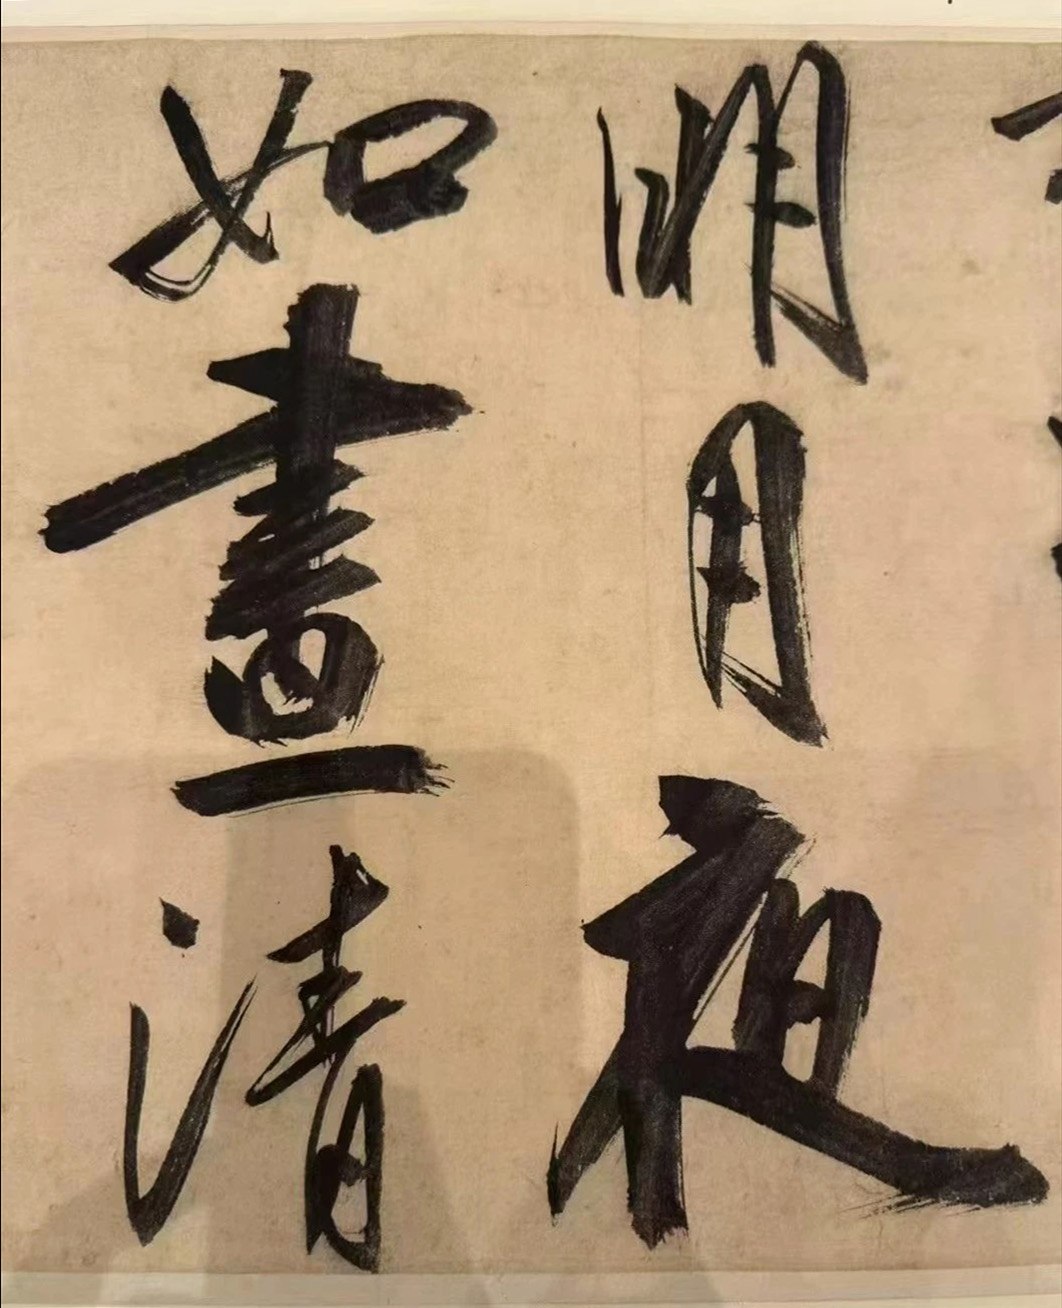 明月夜
如晝清